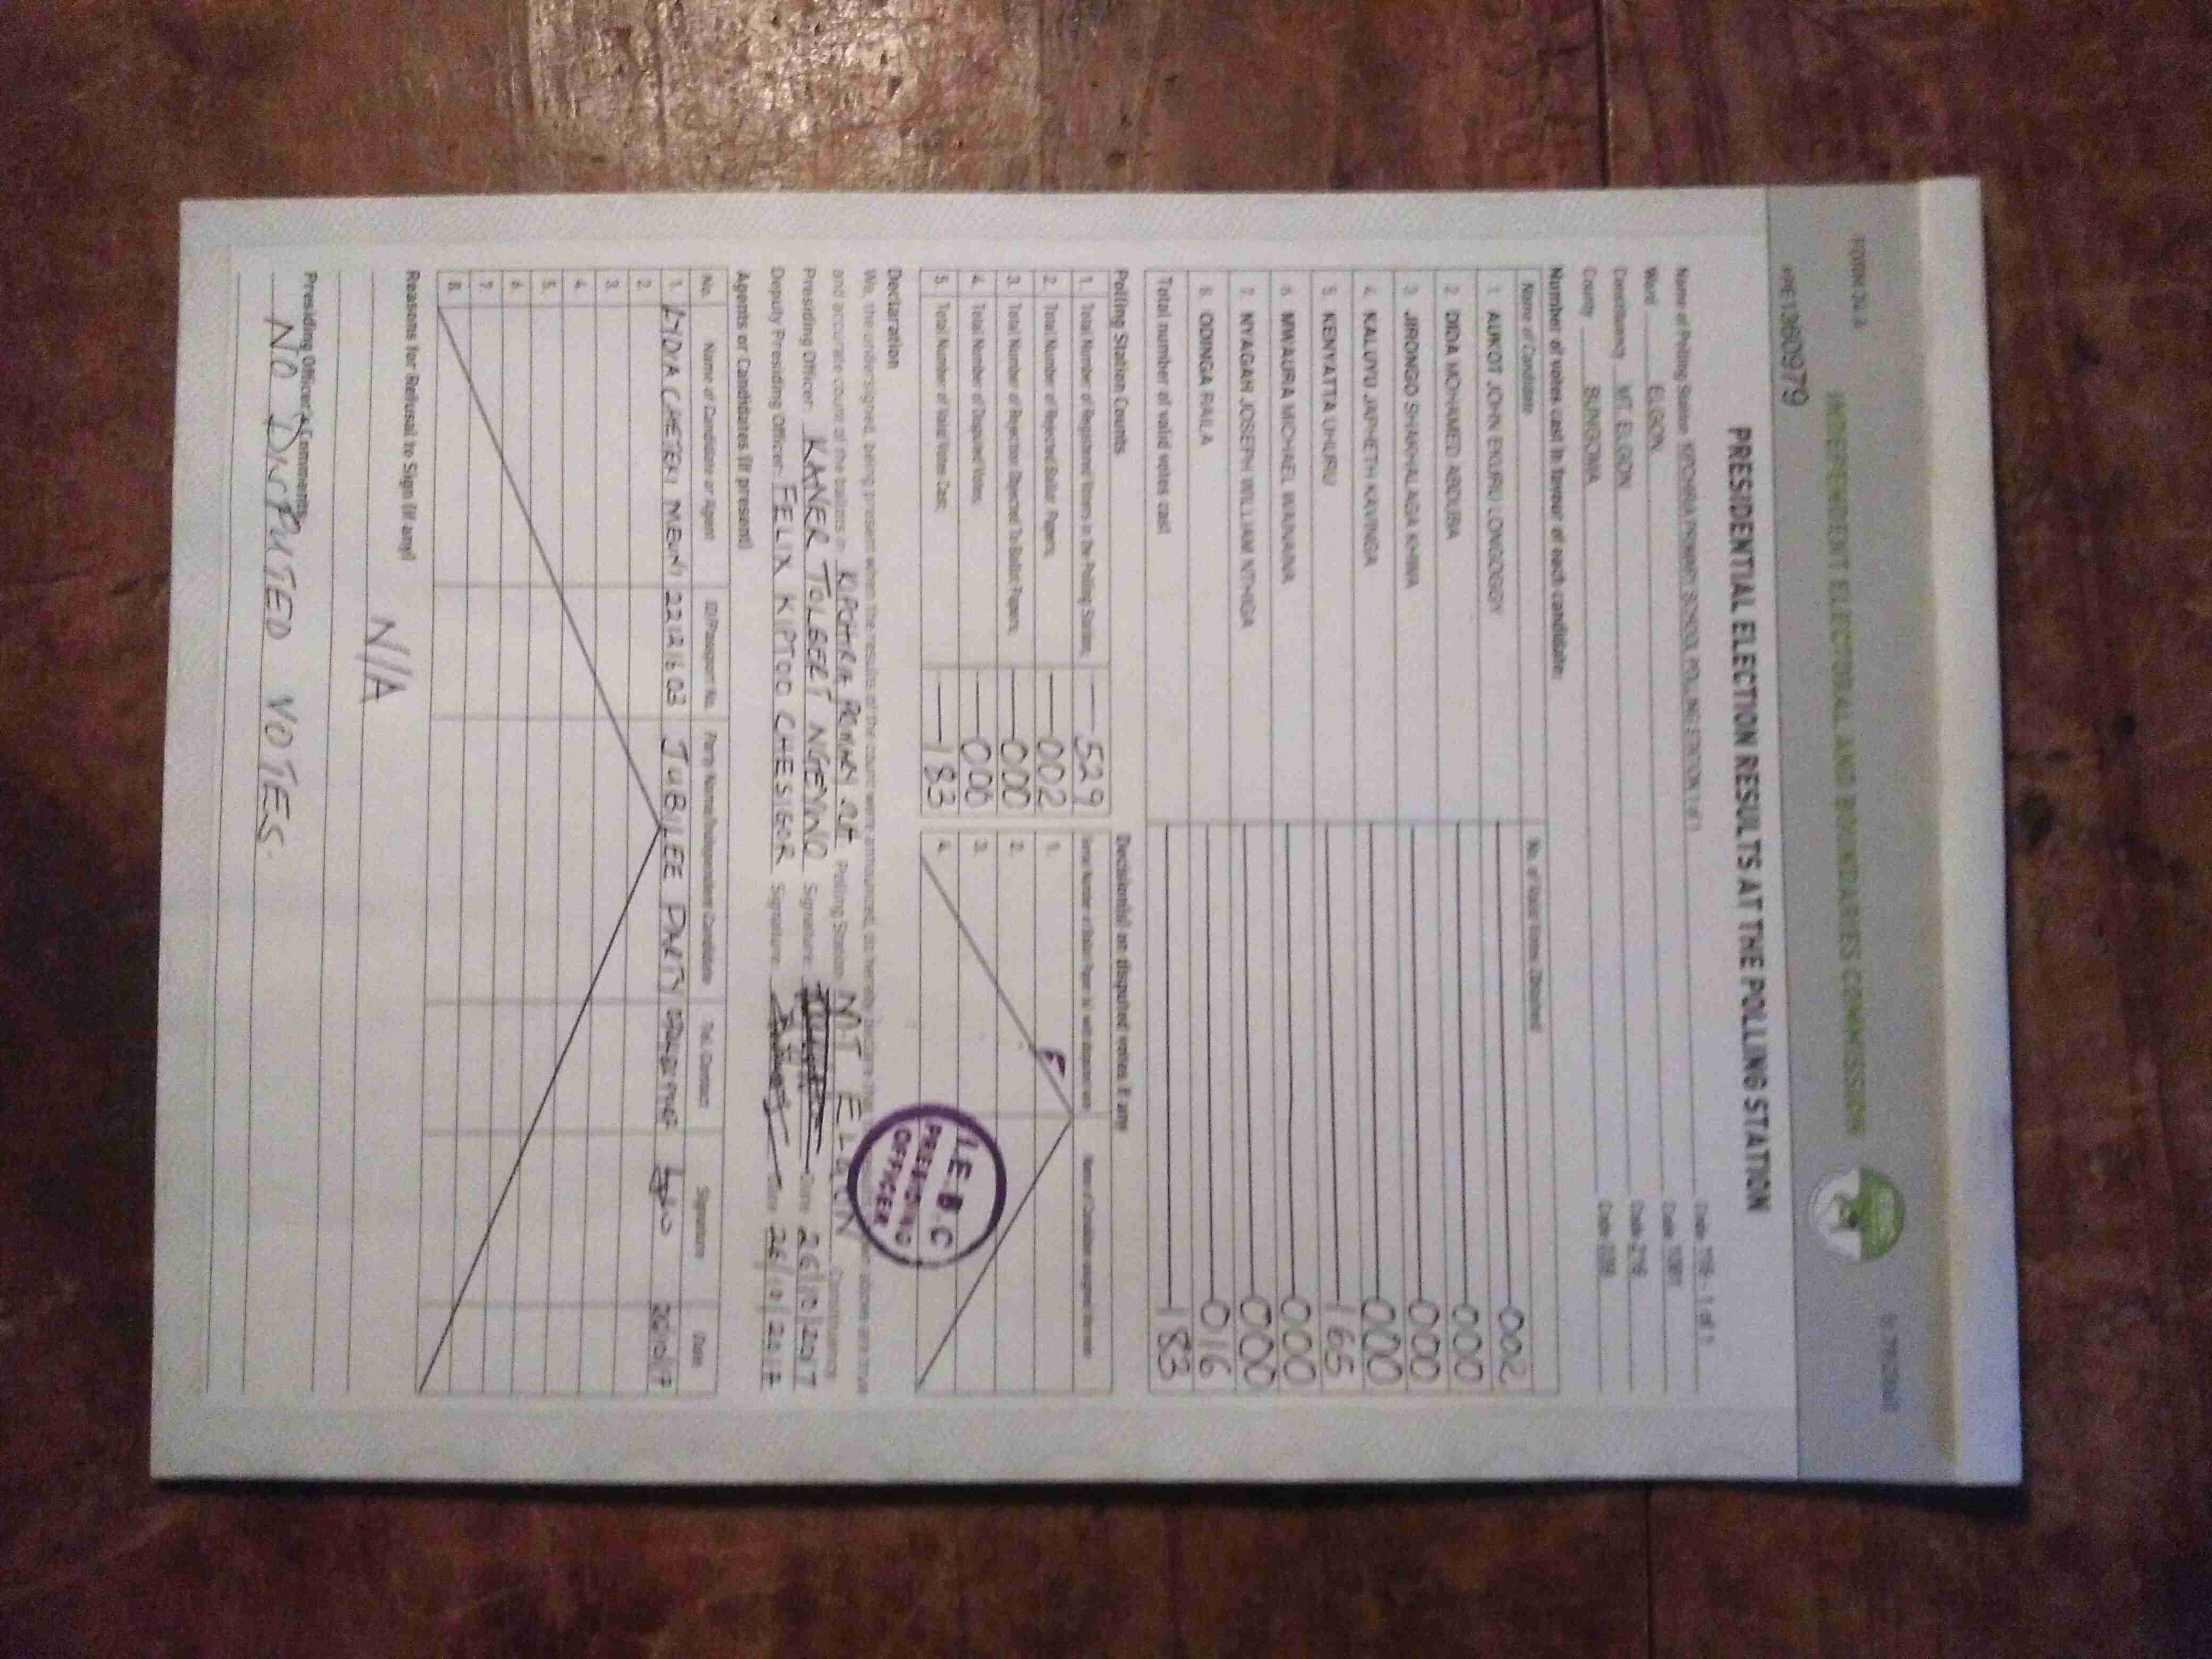 FORM 34 A
INDEPENDENT ELECTORAL AND BOUNDARIES COMMISSION
PRESIDENTIAL ELECTION RESULTS AT THE POLLING STATION
Name of Polling Station KIPCHIRIA PRIMARY SCHOOL POLLING STATION 1 of 1 Code 1 of 1
Ward ELGON Code
Constituency MT. ELGON Code 216
County BUNGOMA Code 039
Number of votes cast in favour of each candidate:
Name of Candidate No. of Valid Votes Obtained
1. AUKOT JOHN EKURU LONGOGGY 002
2. DIDA MOHAMED ABDUBA 000
3. JIRONGO SHAKHALAGA KHWA 000
4. KALUYU JAPHETH KAVINGA 000
5. KENYATTA UHURU 165
6. MWAURA MICHAEL WAINAINA 000
7. NYAGAH JOSEPH WILLIAM NTHIGA 000
8. ODINGA RAILA 016
Total number of valid votes cast 183
Polling Station Counts
1. Total Number of Registered Voters in the Polling Station; 529
2. Total Number of Rejected Ballot Papers; 002
3. Total Number of Rejection Objected To Ballot Papers; 000
4. Total Number of Disputed Votes; 000
5. Total Number of Valid Votes Cast; 183
Decision(s) on disputed votes if any
1.
2.
3.
4.
I.E.B.C
PRESIDING
OFFICER
Declaration
We, the undersigned, being present when the results of the count were announced, do hereby declare that above are true
and accurate count of the ballots in Polling Station MT ELGON Constituency
Presiding Officer: KANER TOLBERT NGEYWO Signature: Date 26/10/2017
Deputy Presiding Officer: FELIX KIPTOO CHESIGOR Signature: Date 26/10/2017
Agents or Candidates (if present)
No. Name of Candidate or Agent ID/Passport No. Party Name/Independent Candidate Tel. Contact Signature Date
1. LYDIA 22121603 JUBILEE PARTY 26/10/17
2.
3.
4.
5.
6.
7.
8.
Reasons for Refusal to Sign (if any)
N/A
Presiding Officer's Comments:
NO DISPUTED VOTES.